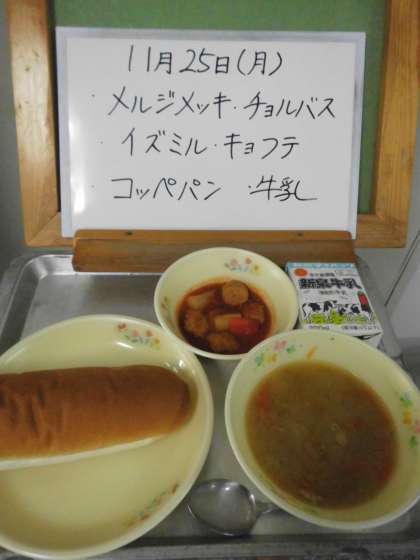 11月25日(月)
・メルジメッキ・チョルバス
・イズミル・キョフテ
・コッペパン ・牛乳
牛乳